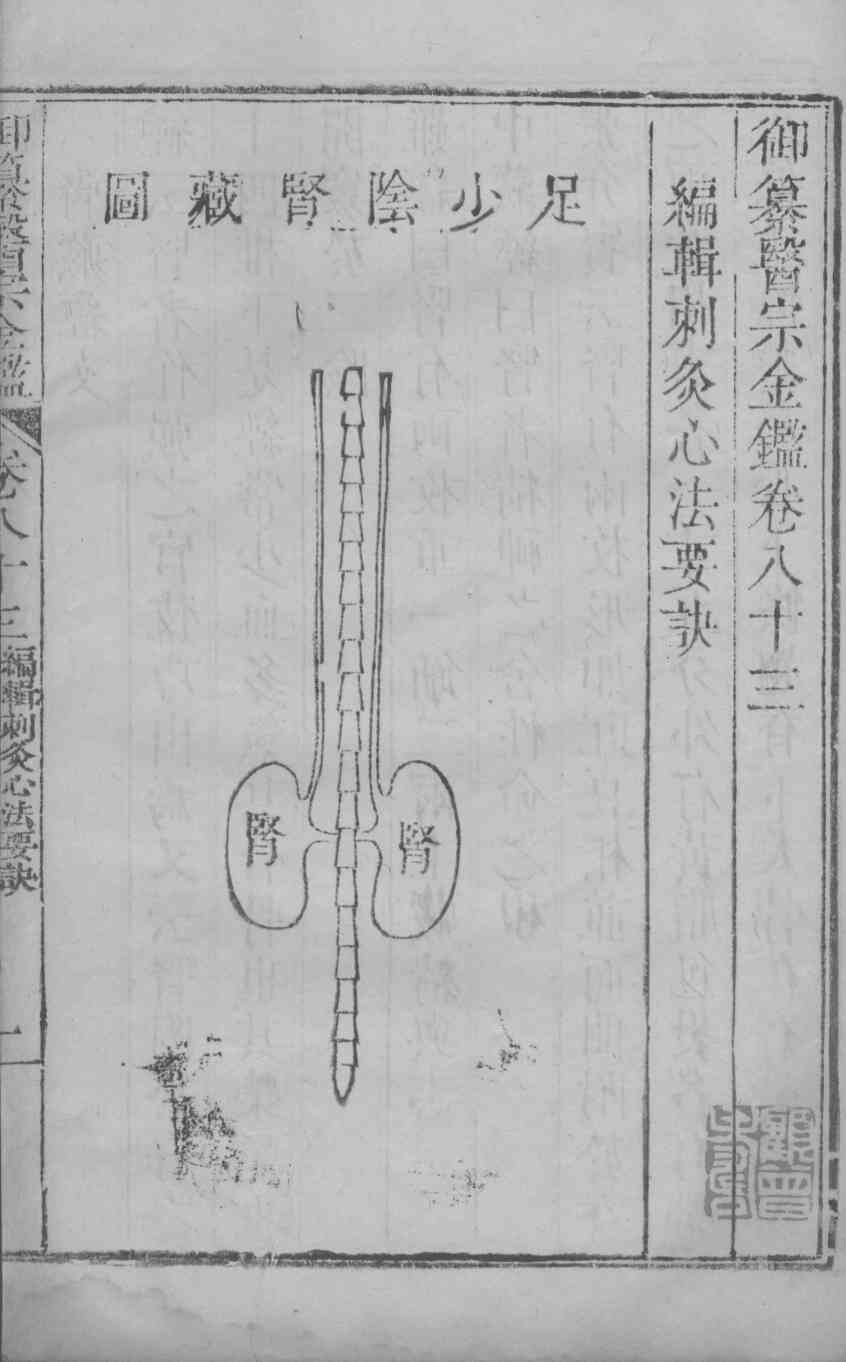 御纂醫宗金鑑卷八十三
編輯刺灸心法要訣
足少陰腎藏圖
腎
腎
御纂醫宗金鑑
卷八十三
編輯刺灸心法要訣